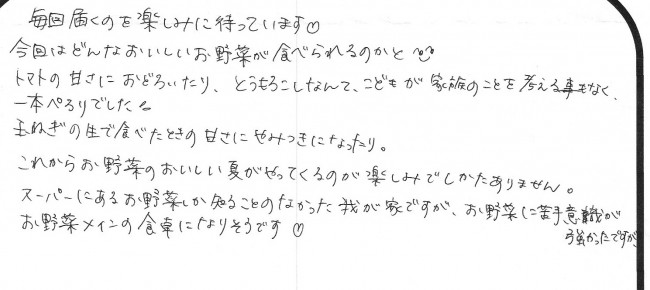 毎回届くのを楽しみに待っています♡
今回はどんなおいしいお野菜が食べられるのかと
トマトの甘さにおどろいたり、とうもろこしなんて、こどもが家族のことを考える事もなく、
一本ぺろりでした
玉ねぎの生で食べたときの甘さにやみつきになったり。
これからお野菜のおいしい夏がやってくるのが楽しみでしかたありません。
スーパーにあるお野菜しか知ることのなかった我が家ですが、お野菜に苦手意識が
強かったですが、
お野菜メインの食卓になりそうです♡